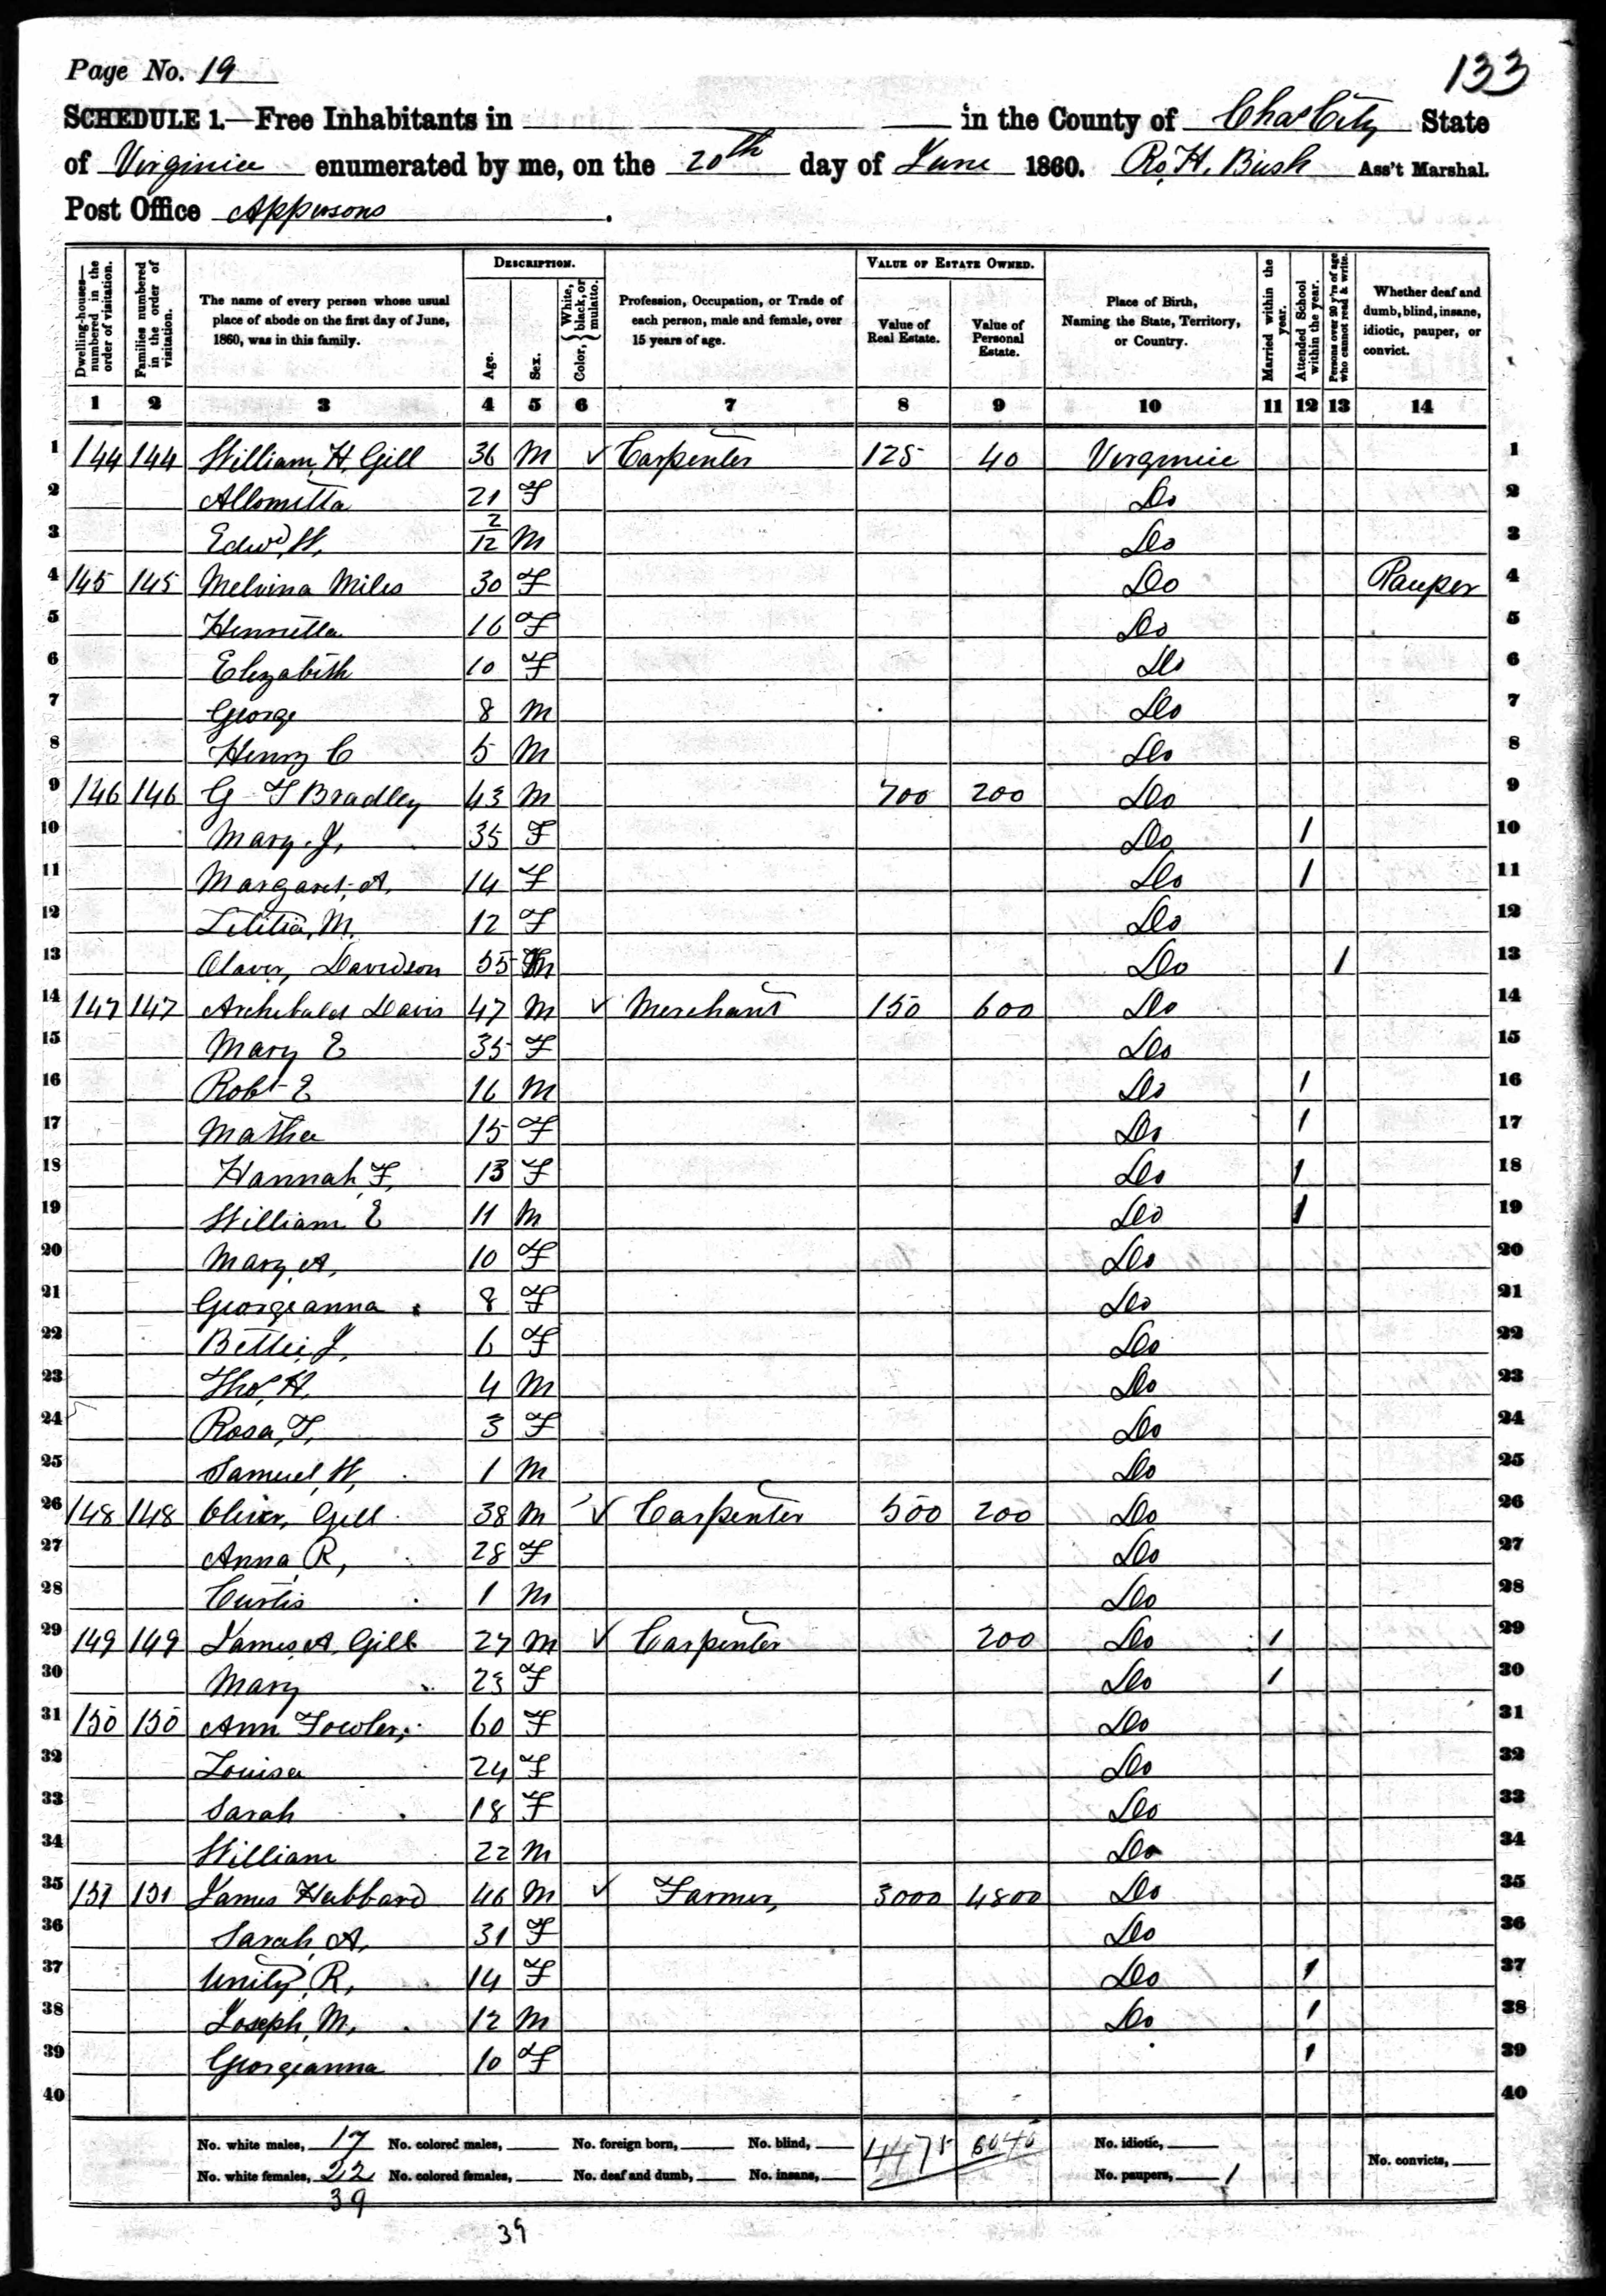 Page No. 19
133
SCHEDULE 1.—Free Inhabitants in in the County of Chas City State
of Virginia enumerated by me, on the 20th day of June 1860. Ro. H. Bush Ass't Marshal.
Post Office Appersons.
Dwelling-houses—numbered in the order of visitation.
Families numbered in the order of visitation.
The name of every person whose usual place of abode on the first day of June, 1860, was in this family.
DESCRIPTION.
Age.
Sex.
Color, White, black, or mulatto.
Profession, Occupation, or Trade of each person, male and female, over 15 years of age.
VALUE OF ESTATE OWNED.
Value of Real Estate.
Value of Personal Estate.
Place of Birth, Naming the State, Territory, or Country.
Married within the year.
Attended School within the year.
Persons over 20 y'rs of age who cannot read & write.
Whether deaf and dumb, blind, insane, idiotic, pauper, or convict.
1 2 3 4 5 6 7 8 9 10 11 12 13 14
1 144 144 William, H, Gill 36 M ✓ Carpenter 125 40 Virginia 1
2 21 F Do 2
3 Edwd, W, 2/12 M Do 3
4 145 145 Melvina Miles 30 F Do Pauper 4
5 Henrietta 16 F Do 5
6 Elizabeth 10 F Do 6
7 George 8 M Do 7
8 Henry C 5 M Do 8
9 146 146 G T Bradley 43 M 700 200 Do 9
10 Mary J, 35 F Do 1 10
11 Margaret, A, 14 F Do 1 11
12 Letitia, M, 12 F Do 12
13 Davidson 55 M Do 1 13
14 147 147 Archibald Davis 47 M ✓ Merchant 150 600 Do 14
15 Mary E 35 F Do 15
16 Robt E 16 M Do 1 16
17 Matha 15 F Do 1 17
18 Hannah, F, 13 F Do 1 18
19 William E 11 M Do 1 19
20 Mary, A, 10 F Do 20
21 Georgeanna 8 F Do 21
22 Bettie, J, 6 F Do 22
23 Thos, H, 4 M Do 23
24 Rosa, F, 3 F Do 24
25 Samuel, W, 1 M Do 25
26 148 148 Oliver, Gill 38 M ✓ Carpenter 500 200 Do 26
27 Anna, R, 28 F Do 27
28 Curtis 1 M Do 28
29 149 149 James, A, Gill 27 M ✓ Carpenter 200 Do 1 29
30 Mary 23 F Do 1 30
31 150 150 Ann Fowler, 60 F Do 31
32 Louisa 24 F Do 32
33 Sarah 18 F Do 33
34 William 22 M Do 34
35 151 151 James Hubbard 46 M ✓ Farmer, 3000 4800 Do 35
36 Sarah, A, 31 F Do 36
37 Unity, R, 14 F Do 1 37
38 Joseph, M, 12 M Do 1 38
39 Georgeanna 10 F 1 39
40 40
No. white males, 17 No. colored males, No. foreign born, No. blind, 4475 6040 No. idiotic,
No. white females, 22 No. colored females, No. deaf and dumb, No. insane, No. paupers, 1 No. convicts,
39
39